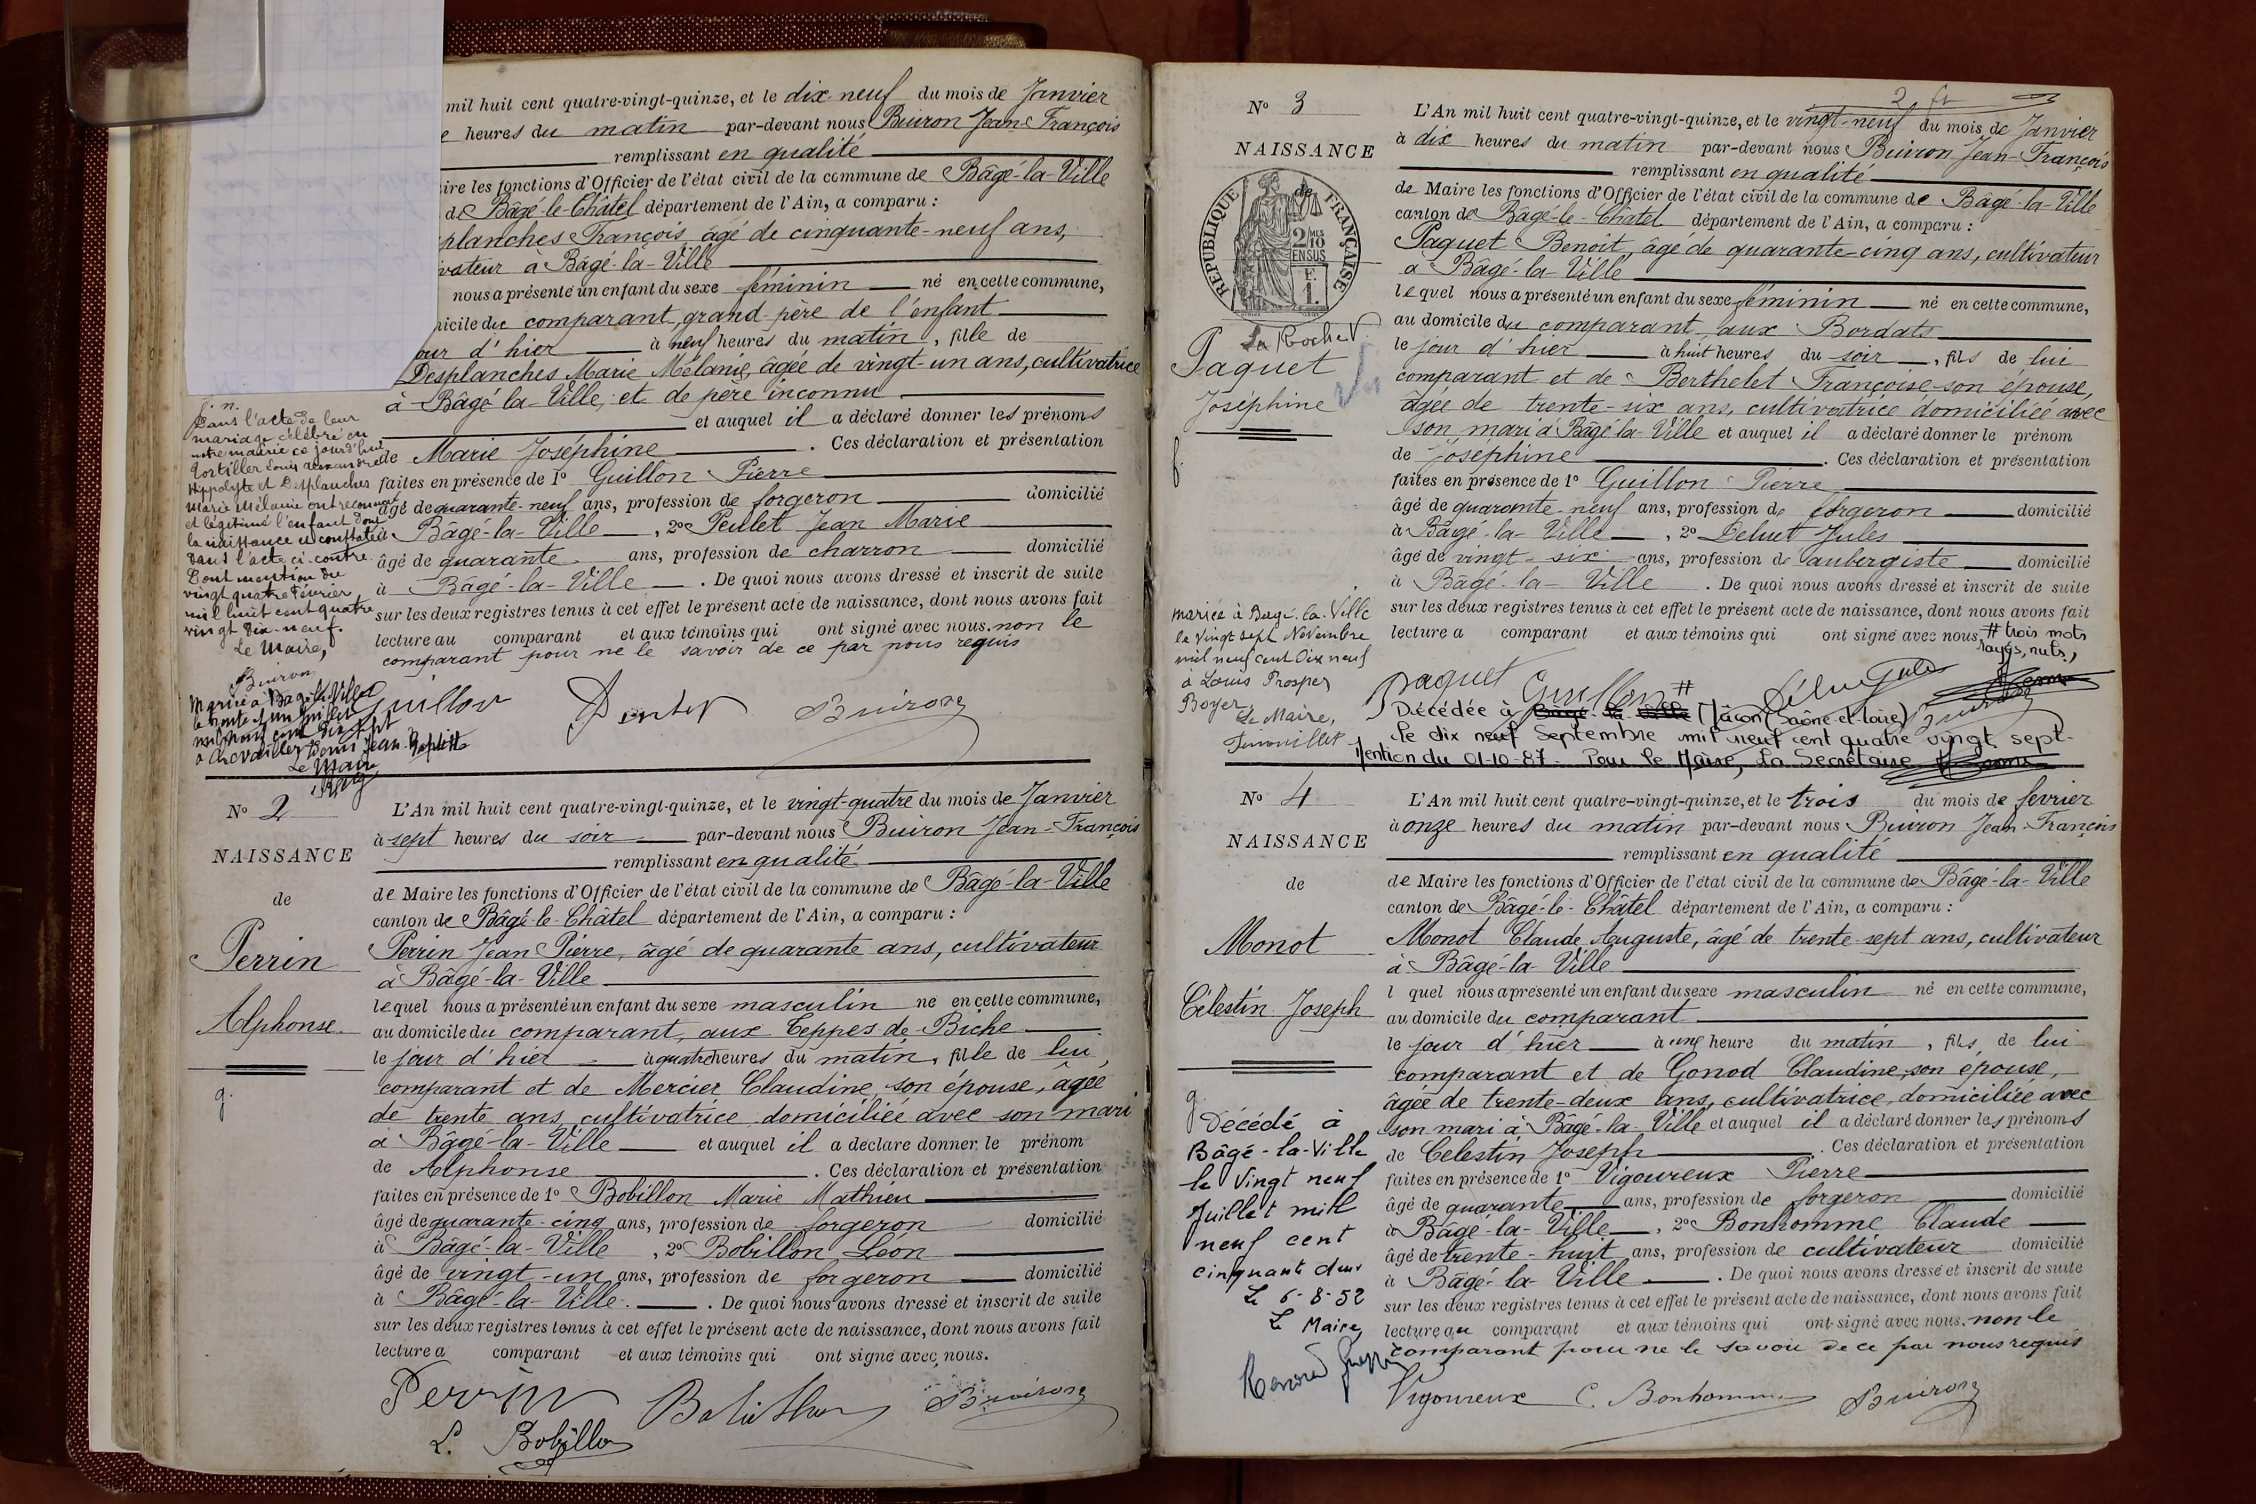 mil huit cent quatre-vingt-quinze, et le dix-neuf du mois de Janvier
heures du matin par-devant nous Buiron Jean-François
remplissant en qualité
ire les fonctions d'Officier de l'état civil de la commune de Bâgé-la-Ville
de Bâgé-le-Châtel département de l'Ain, a comparu :
planches François âgé de cinquante-neuf ans,
vateur à Bâgé-la-Ville
nous a présenté un enfant du sexe féminin né en cette commune,
icile du comparant, grand-père de l'enfant
our d'hier à neuf heures du matin, fille de
Desplanches Marie Mélanie, âgée de vingt-un ans, cultivatrice
à Bâgé la-Ville, et de père inconnu
et auquel il a déclaré donner les prénoms
de Marie Joséphine. Ces déclaration et présentation
faites en présence de 1° Guillon Pierre
âgé de quarante-neuf ans, profession de forgeron domicilié
à Bâgé-la-Ville, 2° Peulet Jean Marie
âgé de quarante ans, profession de charron domicilié
à Bâgé-la-Ville. De quoi nous avons dressé et inscrit de suite
sur les deux registres tenus à cet effet le présent acte de naissance, dont nous avons fait
lecture au comparant et aux témoins qui ont signé avec nous. non le
comparant pour ne le savoir de ce par nous requis
Dans l'acte de leur
mariage célébré en
notre mairie ce jourd'hui
Louis
Hippolyte et Desplanches
Marie Mélanie ont reconnu
et légitimé l'enfant dont
la naissance est constatée
dans l'acte ci-contre.
Dont mention du
vingt quatre Février
mil huit cent quatre
vingt dix-neuf.
Le Maire,
Buiron
Mariée à Bâgé-la-Ville
le trente et un Juillet
mil neuf cent dix sept
à Chevailler Denis Jean-Baptiste
Le Maire
Guillon Peulet Buiron
N° 2
NAISSANCE
de
Perrin
Alphonse
g.
L'An mil huit cent quatre-vingt-quinze, et le vingt-quatre du mois de Janvier
à sept heures du soir par-devant nous Buiron Jean-François
remplissant en qualité
de Maire les fonctions d'Officier de l'état civil de la commune de Bâgé-la-Ville
canton de Bâgé-le-Châtel département de l'Ain, a comparu :
Perrin Jean Pierre, âgé de quarante ans, cultivateur
à Bâgé-la-Ville
lequel nous a présenté un enfant du sexe masculin né en cette commune,
au domicile du comparant, aux Teppes de Biche
le jour d'hier à quatre heures du matin, fille de lui
comparant et de Mercier Claudine, son épouse, âgée
de trente ans, cultivatrice, domiciliée avec son mari
à Bâgé-la-Ville et auquel il a déclaré donner le prénom
de Alphonse. Ces déclaration et présentation
faites en présence de 1° Bobillon Marie Mathieu
âgé de quarante-cinq ans, profession de forgeron domicilié
à Bâgé-la-Ville, 2° Bobillon Léon
âgé de vingt-un ans, profession de forgeron domicilié
à Bâgé-la-Ville. De quoi nous avons dressé et inscrit de suite
sur les deux registres tenus à cet effet le présent acte de naissance, dont nous avons fait
lecture a comparant et aux témoins qui ont signé avec nous.
Perrin Bobillon Buiron
L. Bobillon
N° 3
NAISSANCE
de
RÉPUBLIQUE FRANÇAISE
2/10 EN SUS
F. 1.
La Rochet
Paquet
Joséphine
f.
L'An mil huit cent quatre-vingt-quinze, et le vingt-neuf du mois de Janvier
à dix heures du matin par-devant nous Buiron Jean-François
remplissant en qualité
de Maire les fonctions d'Officier de l'état civil de la commune de Bâgé-la-Ville
canton de Bâgé-le-Châtel département de l'Ain, a comparu :
Paquet Benoit, âgé de quarante-cinq ans, cultivateur
à Bâgé-la-Ville
lequel nous a présenté un enfant du sexe féminin né en cette commune,
au domicile du comparant aux Bordats
le jour d'hier à huit heures du soir, fils de lui
comparant et de Berthelet Françoise son épouse,
âgée de trente-six ans, cultivatrice domiciliée avec
son mari à Bâgé-la-Ville et auquel il a déclaré donner le prénom
de Joséphine. Ces déclaration et présentation
faites en présence de 1° Guillon Pierre
âgé de quarante-neuf ans, profession de forgeron domicilié
à Bâgé-la-Ville, 2° Delut Jules
âgé de vingt-six ans, profession de aubergiste domicilié
à Bâgé-la-Ville. De quoi nous avons dressé et inscrit de suite
sur les deux registres tenus à cet effet le présent acte de naissance, dont nous avons fait
lecture a comparant et aux témoins qui ont signé avec nous. # trois mots
rayés, nuls,
mariée à Bagé-la-Ville
le vingt sept Novembre
mil neuf cent dix neuf
à Louis Prosper
Boyer
Le Maire,
Paquet Guillon Delut Jules Buiron
Décédée à Bâgé-la-Ville # Mâcon (Saône-et-Loire)
le dix neuf Septembre mil neuf cent quatre vingt sept-
Mention du 01-10-87- Pour le Maire, La Secrétaire
N° 4
NAISSANCE
de
Monot
Célestin Joseph
g.
L'An mil huit cent quatre-vingt-quinze, et le trois du mois de fevrier
à onze heures du matin par-devant nous Buiron Jean-François
remplissant en qualité
de Maire les fonctions d'Officier de l'état civil de la commune de Bâgé-la-Ville
canton de Bâgé-le-Châtel département de l'Ain, a comparu :
Monot Claude Auguste, âgé de trente-sept ans, cultivateur
à Bâgé-la-Ville
l quel nous a présenté un enfant du sexe masculin né en cette commune,
au domicile du comparant
le jour d'hier à une heure du matin, fils de lui
comparant et de Gonod Claudine, son épouse,
âgée de trente-deux ans, cultivatrice, domiciliée avec
son mari à Bâgé-la-Ville et auquel il a déclaré donner les prénoms
de Célestin Joseph. Ces déclaration et présentation
faites en présence de 1° Vigoureux Pierre
âgé de quarante ans, profession de forgeron domicilié
à Bâgé-la-Ville, 2° Bonhomme Claude
âgé de trente-huit ans, profession de cultivateur domicilié
à Bâgé-la-Ville. De quoi nous avons dressé et inscrit de suite
sur les deux registres tenus à cet effet le présent acte de naissance, dont nous avons fait
lecture au comparant et aux témoins qui ont signé avec nous. non le
comparant pour ne le savoir de ce par nous requis
Décédé à
Bâgé-la-Ville
le Vingt neuf
Juillet mil
neuf cent
cinquante deux
Le 6-8-52
Le Maire,
Vigoureux C. Bonhomme Buiron